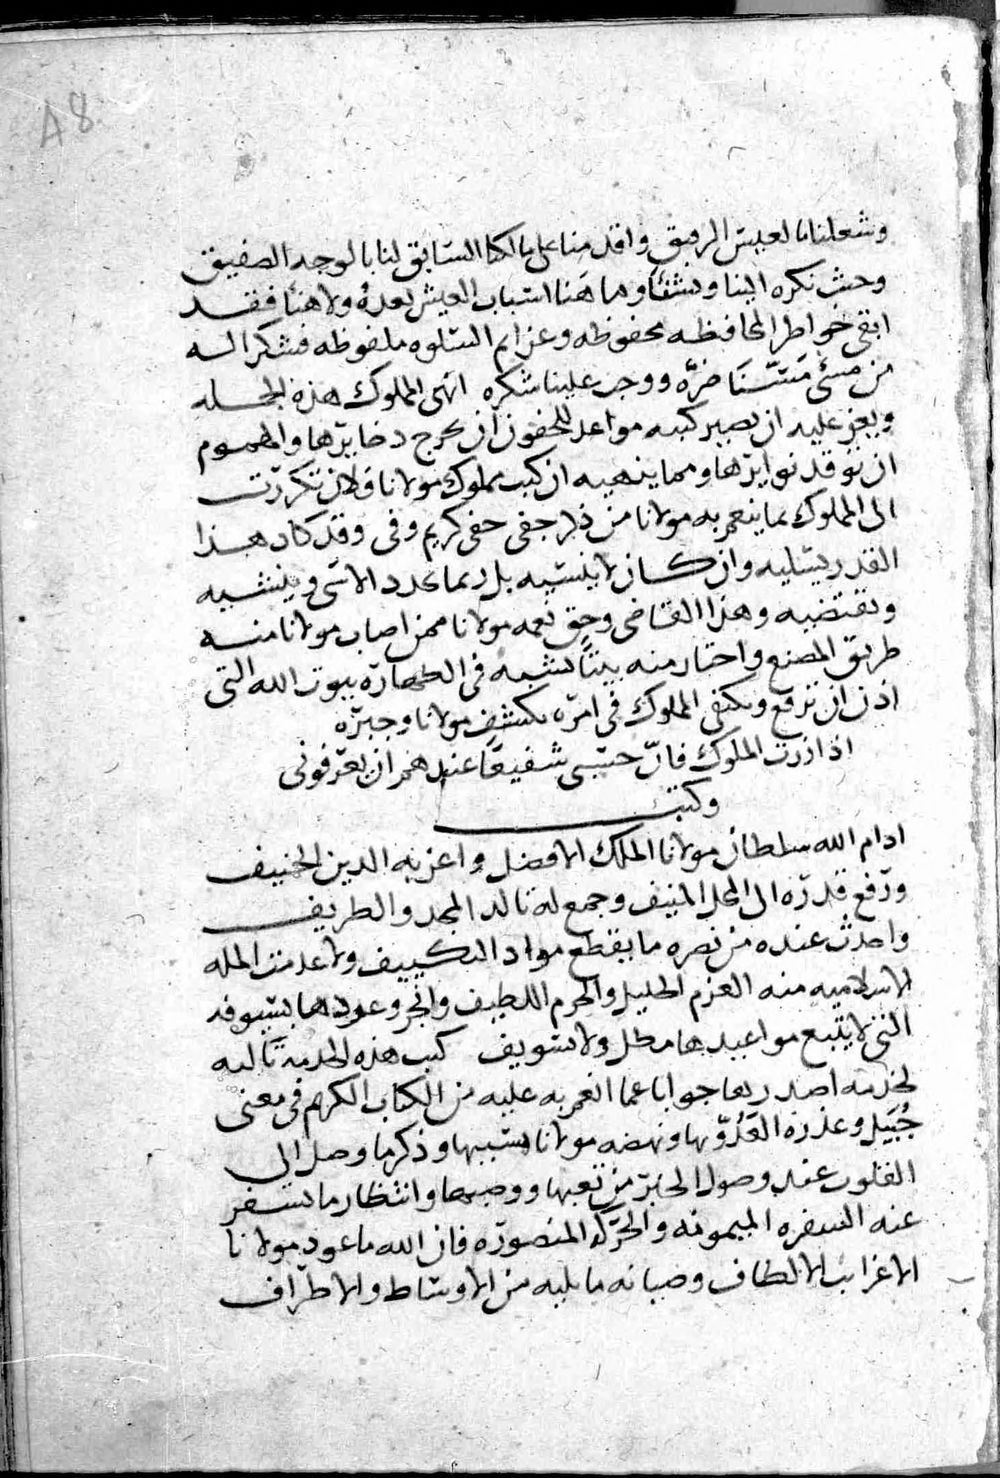 A8
وشغلنا بالعيش الرقيق واقدمنا على البكا السابق لنا بالوجه الصفيق
وحيث نكره البنا ونشنا وما هنا اسباب العيش بعده ولا هنا فقد
ابقى خواطر المحافظه محفوظه وعزايم السلوه ملفوظه فشكر الله
من مسئ مسنا ضره ووجب علينا شكره انهى المملوك هذه الجمله
ويعز عليه ان يصير كتبه مواعد للجفون ان تخرج دخايرها والهموم
ان توقد نوايرها ومما ينهيه ان كتب مملوك مولانا فلان تكررت
الى المملوك بما ينعم به مولانا من ذكر حفى كريم وفى وقد كاد هذا
القدر يسليه وان كان لا ينسيه بل ربما يجدد الاسى وينشيه
ويقتضيه وهذا القاضى وحق نعمه مولانا ممن اصاب مولانا منه
طريق المصنع واختار منه بيتا يشبه فى الطهاره بيوت الله التى
اذن ان ترفع ويكتفى المملوك فى امره بكشف مولانا وخبره
اذا زرت الملوك فان حسبى شفيعا عندهم ان يعرفونى
وكتب
ادام الله سلطان مولانا الملك الافضل واعز به الدين الحنيف
ورفع قدره الى المحل المنيف وجمع له تالد المجد والطريف
واحدث عنده من نصره ما يقطع مواد التكييف ولا عدمت المله
الاسلاميه منه العزم الجليل والحزم اللطيف وانجز وعودها بسيوفه
التى لا يتبع مواعيدها مطل ولا تسويف كتب هذه الخدمه تاليه
لخدمه اصدرها جوابا عما انعم به عليه من الكتاب الكريم فى معنى
جبيل وغدره العدو بها ونهضه مولانا بسببها وذكر ما وصل الى
القلوب عند وصول الخبر من تعبها ووصبها وانتظار ما تسفر
عنه السفره الميمونه والحركه المنصوره فان الله ما عود مولانا
الا غرايب الالطاف وصيانه ما يليه من الاوساط والاطراف